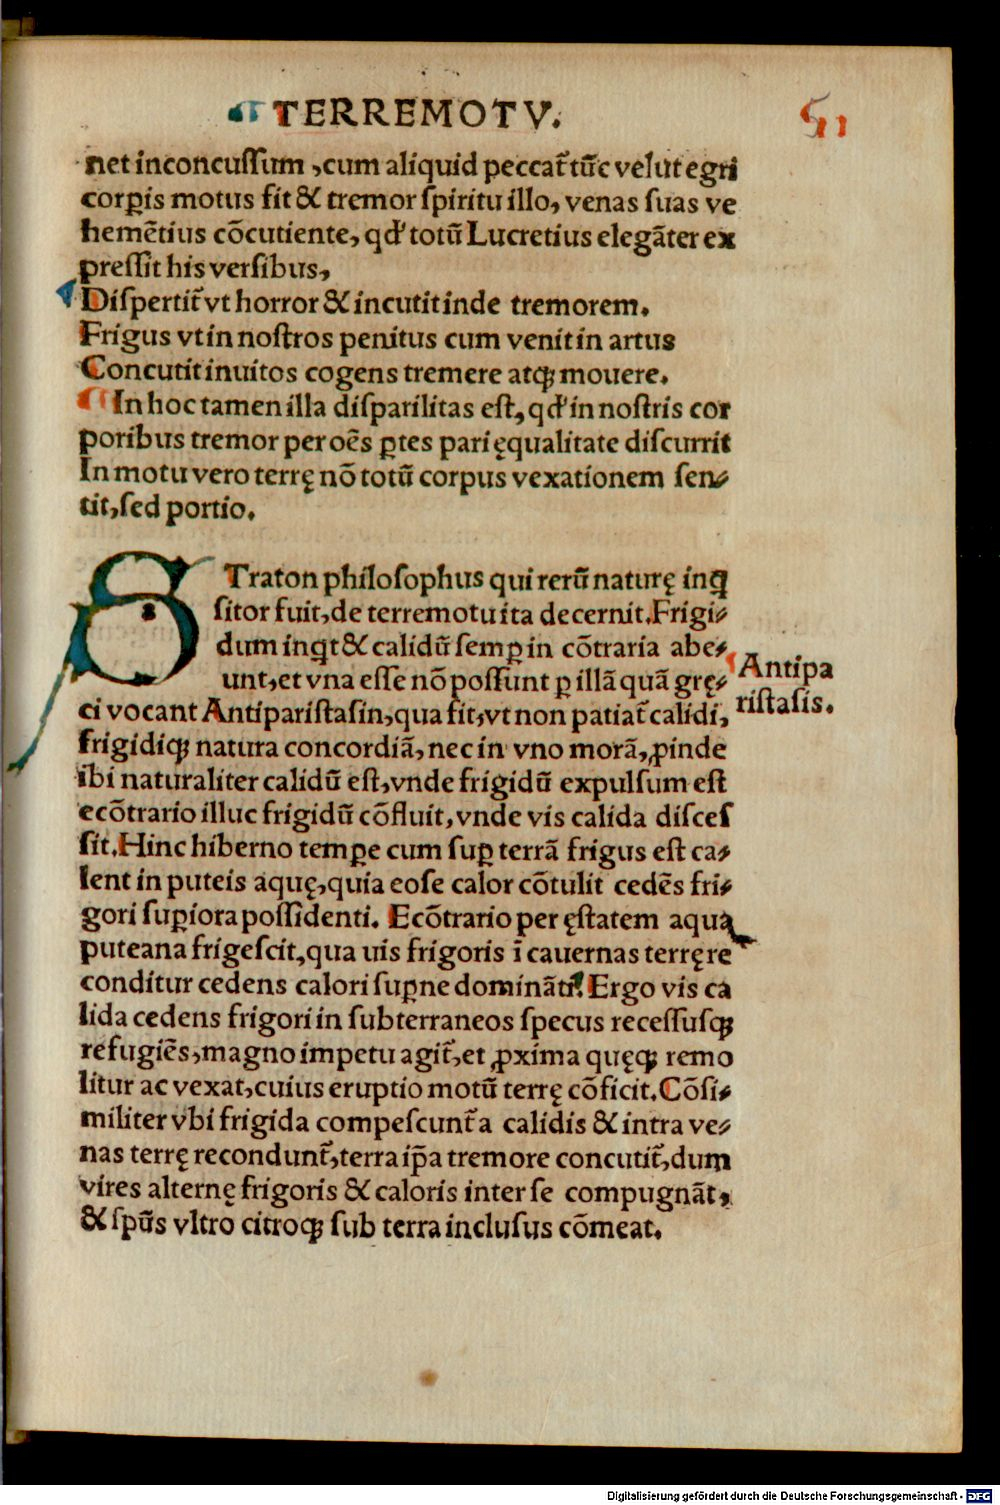 TERREMOTV.
51
net inconcuſſum ,cum aliquid peccat᷑ tūc velut egri
corꝑis motus fit & tremor ſpiritu illo, venas ſuas ve
hemētius cōcutiente, qđ totū Lucretius elegāter ex
preſſit his verſibus,
Diſpertit᷑ vt horror & incutit inde tremorem.
Frigus vt in noſtros penitus cum venit in artus
Concutit inuitos cogens tremere atqꝫ mouere.
In hoc tamen illa diſparilitas eſt, qđ in noſtris cor
poribus tremor per oēs ꝑtes pari ęqualitate diſcurrit
In motu vero terrę nō totū corpus vexationem ſen⸗
tit, ſed portio.
STraton philoſophus qui rerū naturę inꝗ
ſitor fuit, de terremotu ita decernit. Frigi⸗
dum inꝗt & calidū ſemꝑ in cōtraria abe⸗
unt, et vna eſſe nō poſſunt ꝑ illā quā grę⸗
ci vocant Antipariſtaſin, qua fit, vt non patiat᷑ calidi,
frigidiqꝫ natura concordiā, nec in vno morā, ꝓinde
ibi naturaliter calidū eſt, vnde frigidū expulſum eſt
ecōtrario illuc frigidū cōfluit, vnde vis calida diſceſ
ſit. Hinc hiberno tempe cum ſuꝑ terrā frigus eſt ca⸗
lent in puteis aquę, quia eoſe calor cōtulit cedēs fri⸗
gori ſuꝑiora poſſidenti. Ecōtrario per ęſtatem aqua
puteana frigeſcit, qua uis frigoris ī cauernas terrę re
conditur cedens calori ſuꝑne domināti. Ergo vis ca
lida cedens frigori in ſubterraneos ſpecus receſſuſqꝫ
refugiēs, magno impetu agit᷑, et ꝓxima quęqꝫ remo
litur ac vexat, cuius eruptio motū terrę cōficit. Cōſi⸗
militer vbi frigida compeſcunt᷑ a calidis & intra ve⸗
nas terrę recondunt᷑, terra ip̄a tremore concutit᷑, dum
vires alternę frigoris & caloris inter ſe compugnāt,
& ſpūs vltro citroqꝫ ſub terra incluſus cōmeat.
Antipa
riſtaſis.
Digitalisierung gefördert durch die Deutsche Forschungsgemeinschaft - DFG